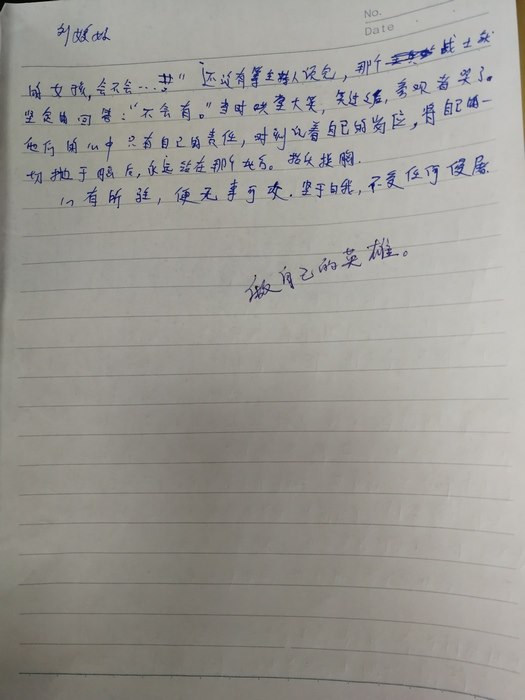 No.
Date
刘媛媛
的女孩,会不会…?" 还没有等主持人话完,那个 战士就
坚定的回答:"不会有。"当时哄堂大笑,笑过之后,参观者哭了。
他们的心中只有自己的责任,时刻记着自己的岗位,将自己的一
切抛于脑后,永远站在那个地方。抬头挺胸.
心有所驻,便无事可攻.坚于自我,不受任何侵扰
做自己的英雄。